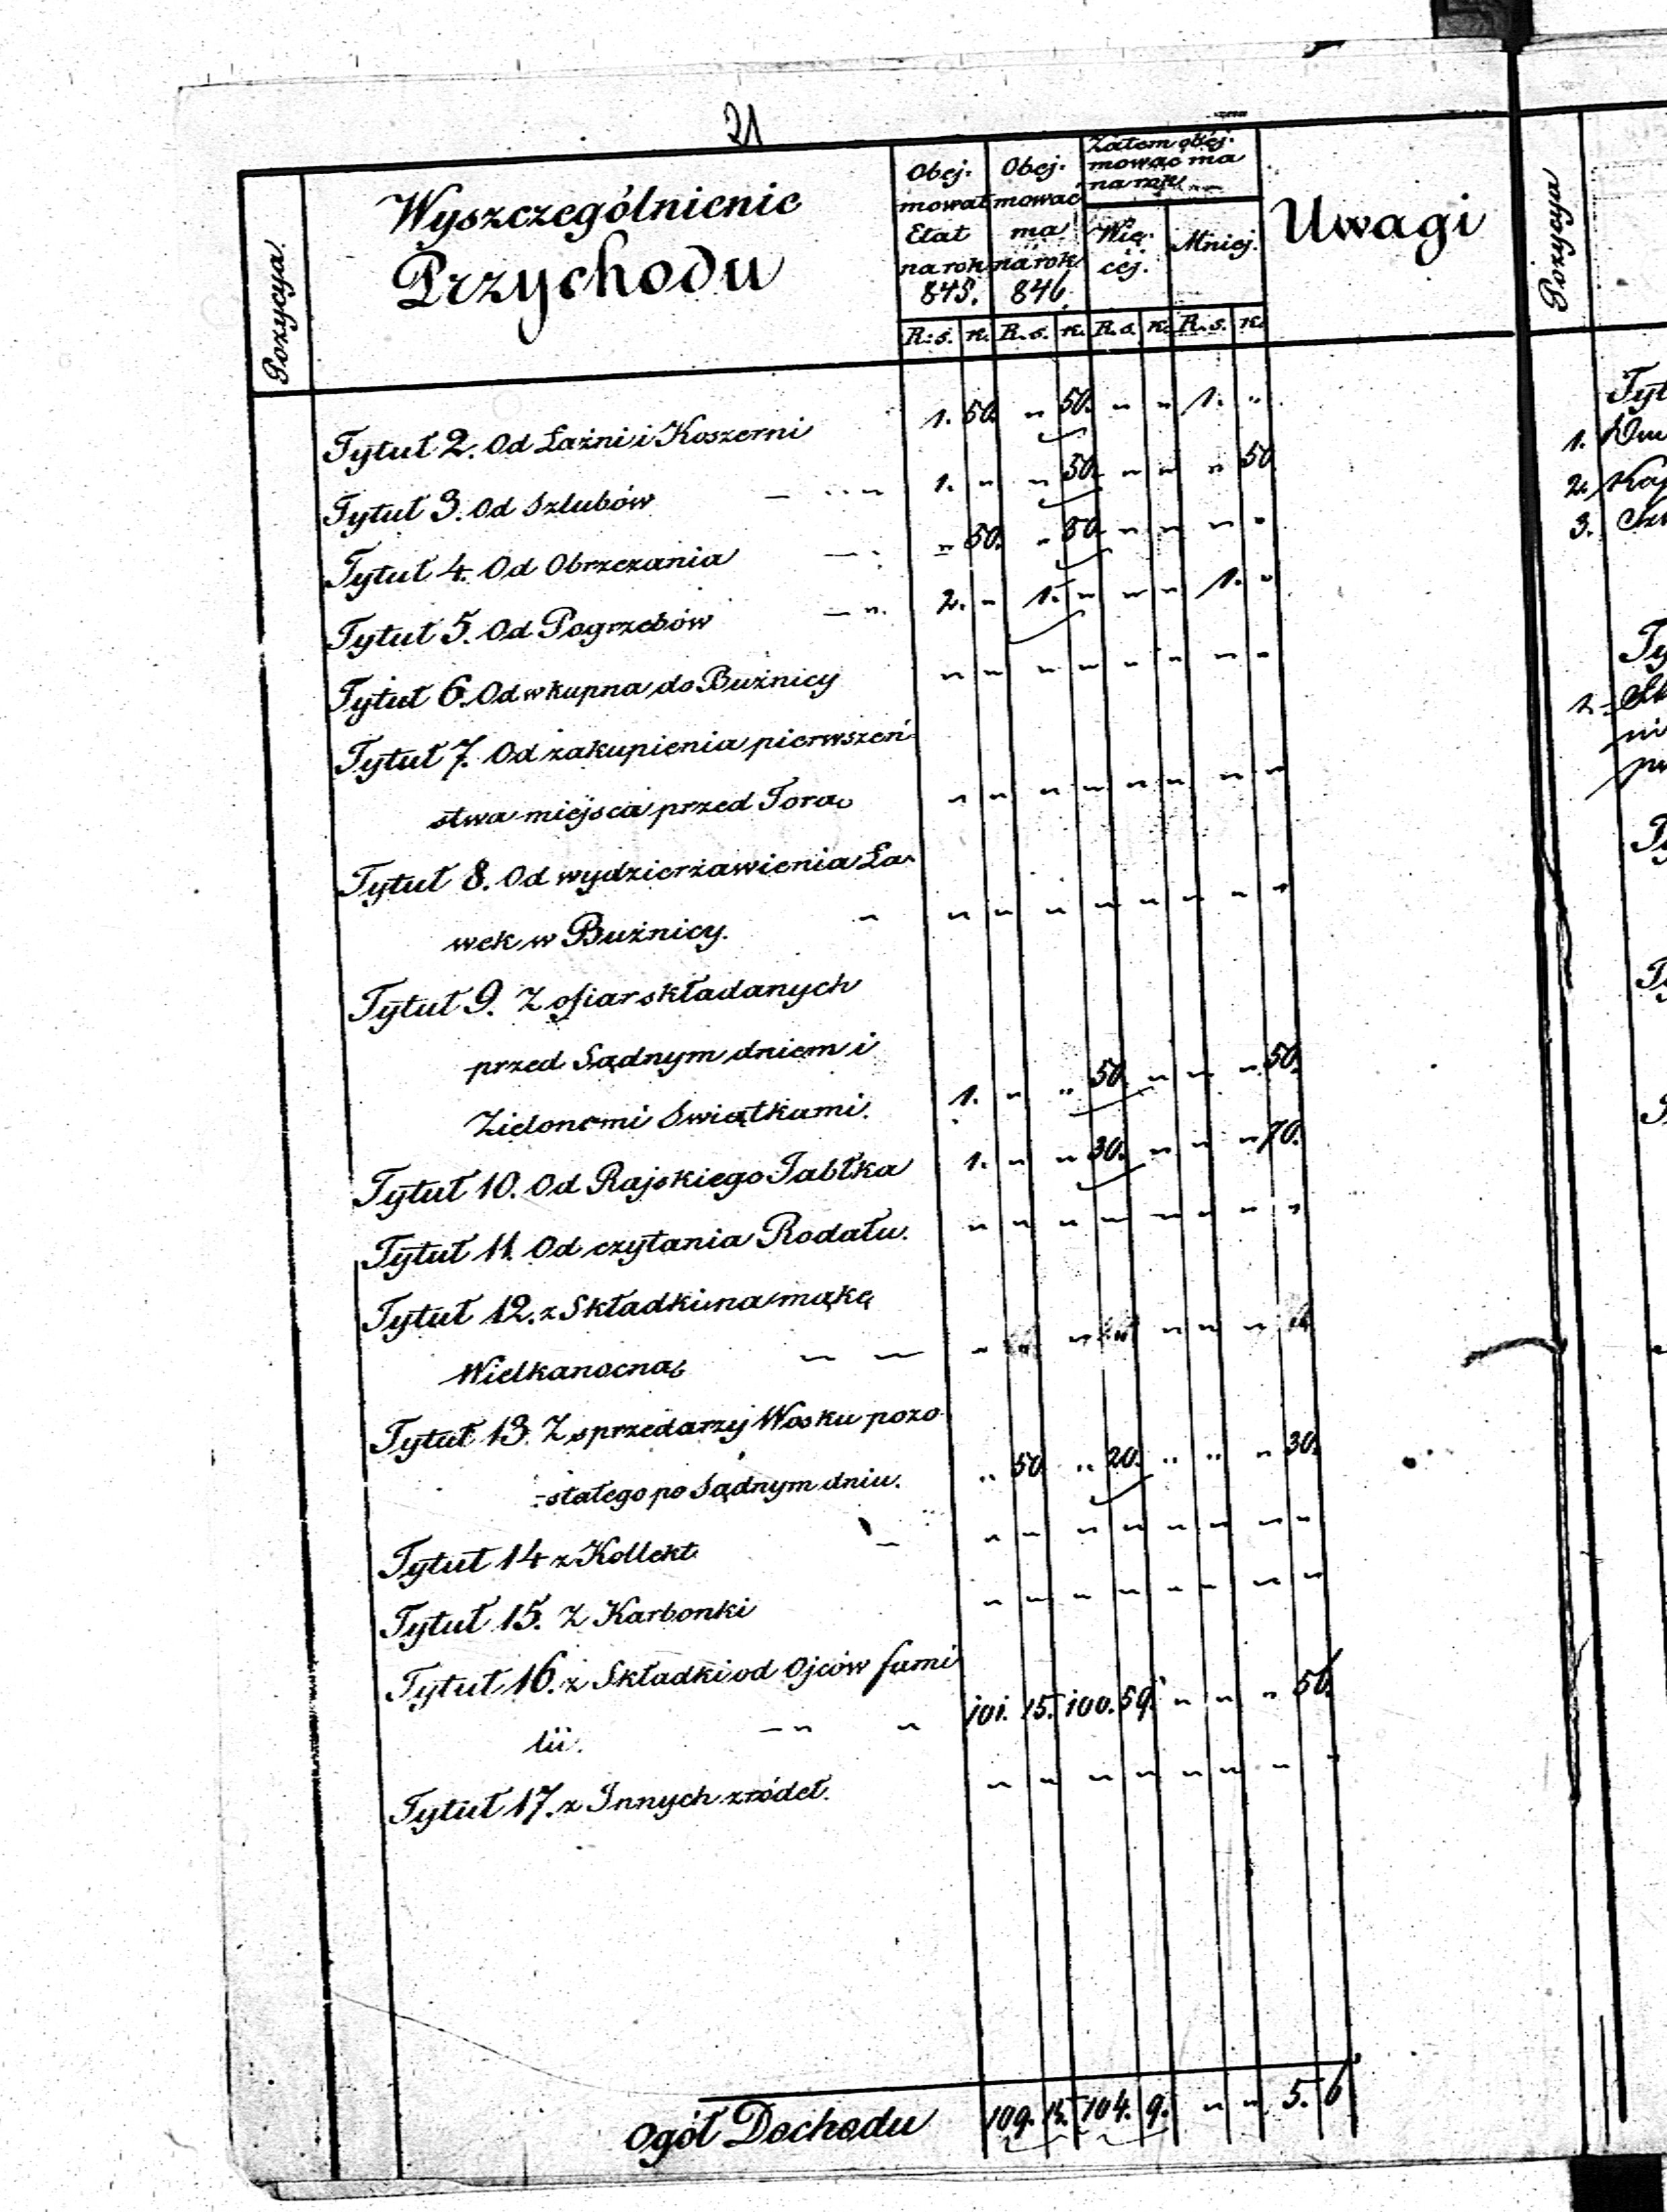 21
Pozycya
Wyszczególnienie
Przychodu
Obej-
mował
Etat
na rok
845.
Obej-
mować
ma
na rok
846.
Zatem obej-
mować ma
na rok
Wię-
cej.
Mniej.
Uwagi
R: s. k. R. s. k. R. s. k. R. s. k.
Tytuł 2. Od Łaźni i Koszerni 1. 50. " 50. " " 1. "
Tytuł 3. Od Szlubów — " 1. " " 50. " " " 50
Tytuł 4. Od Obrzezania — " 50. " 50. " " " "
Tytuł 5. Od Pogrzebów — " 2. " 1. " " " 1. "
Tytuł 6. Od wkupna do Bużnicy " " " " " " " "
Tytuł 7. Od zakupienia pierwszeń-
stwa miejsca przed Torą " " " " " " " "
Tytuł 8. Od wydzierżawienia Ła-
wek w Bużnicy. " " " " " " " " "
Tytuł 9. Z ofiar składanych
przed Sądnym dniem i
Zielonemi Swiątkami. 1. " " 50. " " " 50.
Tytuł 10. Od Rajskiego Jabłka 1. " " 30. " " " 70.
Tytuł 11. Od czytania Rodału. " " " " " " " "
Tytuł 12. z Składki na mąkę
Wielkanocną — — " " " " "
Tytuł 13. Z sprzedarzy Wosku pozo-
stałego po Sądnym dniu. " 50 " 20. " " " 30.
Tytuł 14 z Kollekt — " " " " " " " "
Tytuł 15. Z Karbonki " " " " " " " "
Tytuł 16. z Składki od Ojców fami
lii. — " " 101. 15. 100. 59. " " " 56.
Tytuł 17. z Innych zródeł. " " " " " " " "
Ogół Dochodu 109. 15. 104. 9. " " 5. 6
Pozycya
Tyt
1.
2. Kap
3.
Ty
1.
ni
Ty